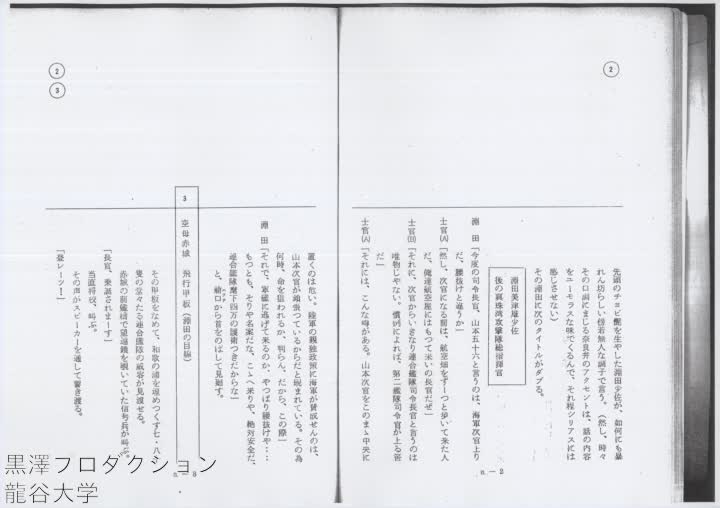 ②
先頭のチョビ髭を生やした淵田少佐が、如何にも暴
れん坊らしい傍若無人な調子で言う。（然し、時々
その口調にまじる奈良弁のアクセントは、話の内容
をユーモラスな味でくるんで、それ程シリアスには
感じさせない）
その淵田に次のタイトルがダブる。
淵田美津雄少佐
後の真珠湾攻撃隊総指揮官
淵　田「今度の司令長官、山本五十六と言うのは、海軍次官上り
だ、腰抜けと違うか」
士官(A)「然し、次官になる前は、航空畑をずーっと歩いて来た人
だ、俺達航空屋にはもって来いの長官だぜ」
士官(B)「それに、次官からいきなり連合艦隊司令長官と言うのは
唯物じゃない。慣例によれば、第二艦隊司令官が上る筈
だ」
士官(A)「それには、こんな噂がある。山本次官をこのまゝ中央に
n－2
②
③
置くのは危い。陸軍の親独政策に海軍が賛成せんのは、
山本次官が頑張つているからだと睨まれている。その為
何時、命を狙われるか、判らん、だから、この際」
淵　田「それで、軍艦に逃げて来るのか、やつぱり腰抜けや…
もつとも、そりや名案だな、こゝへ来りや、絶対安全だ、
連合艦隊麾下四万の護衛つきだからな」
と、艙口から首をのばして見廻す。
3　空母赤城　飛行甲板（淵田の目線）
その甲板をなめて、和歌の浦を埋めつくす七・八十
隻の堂々たる連合艦隊の威容が見渡せる。
赤城の旗艦橋で望遠鏡を覗いていた信号兵が叫ぶ。
「長官、乗艦されまーす」
当直将校、叫ぶ。
「登レーツ！」
その声がスピーカーを通して響き渡る。
n－3
黒澤プロダクション
龍谷大学